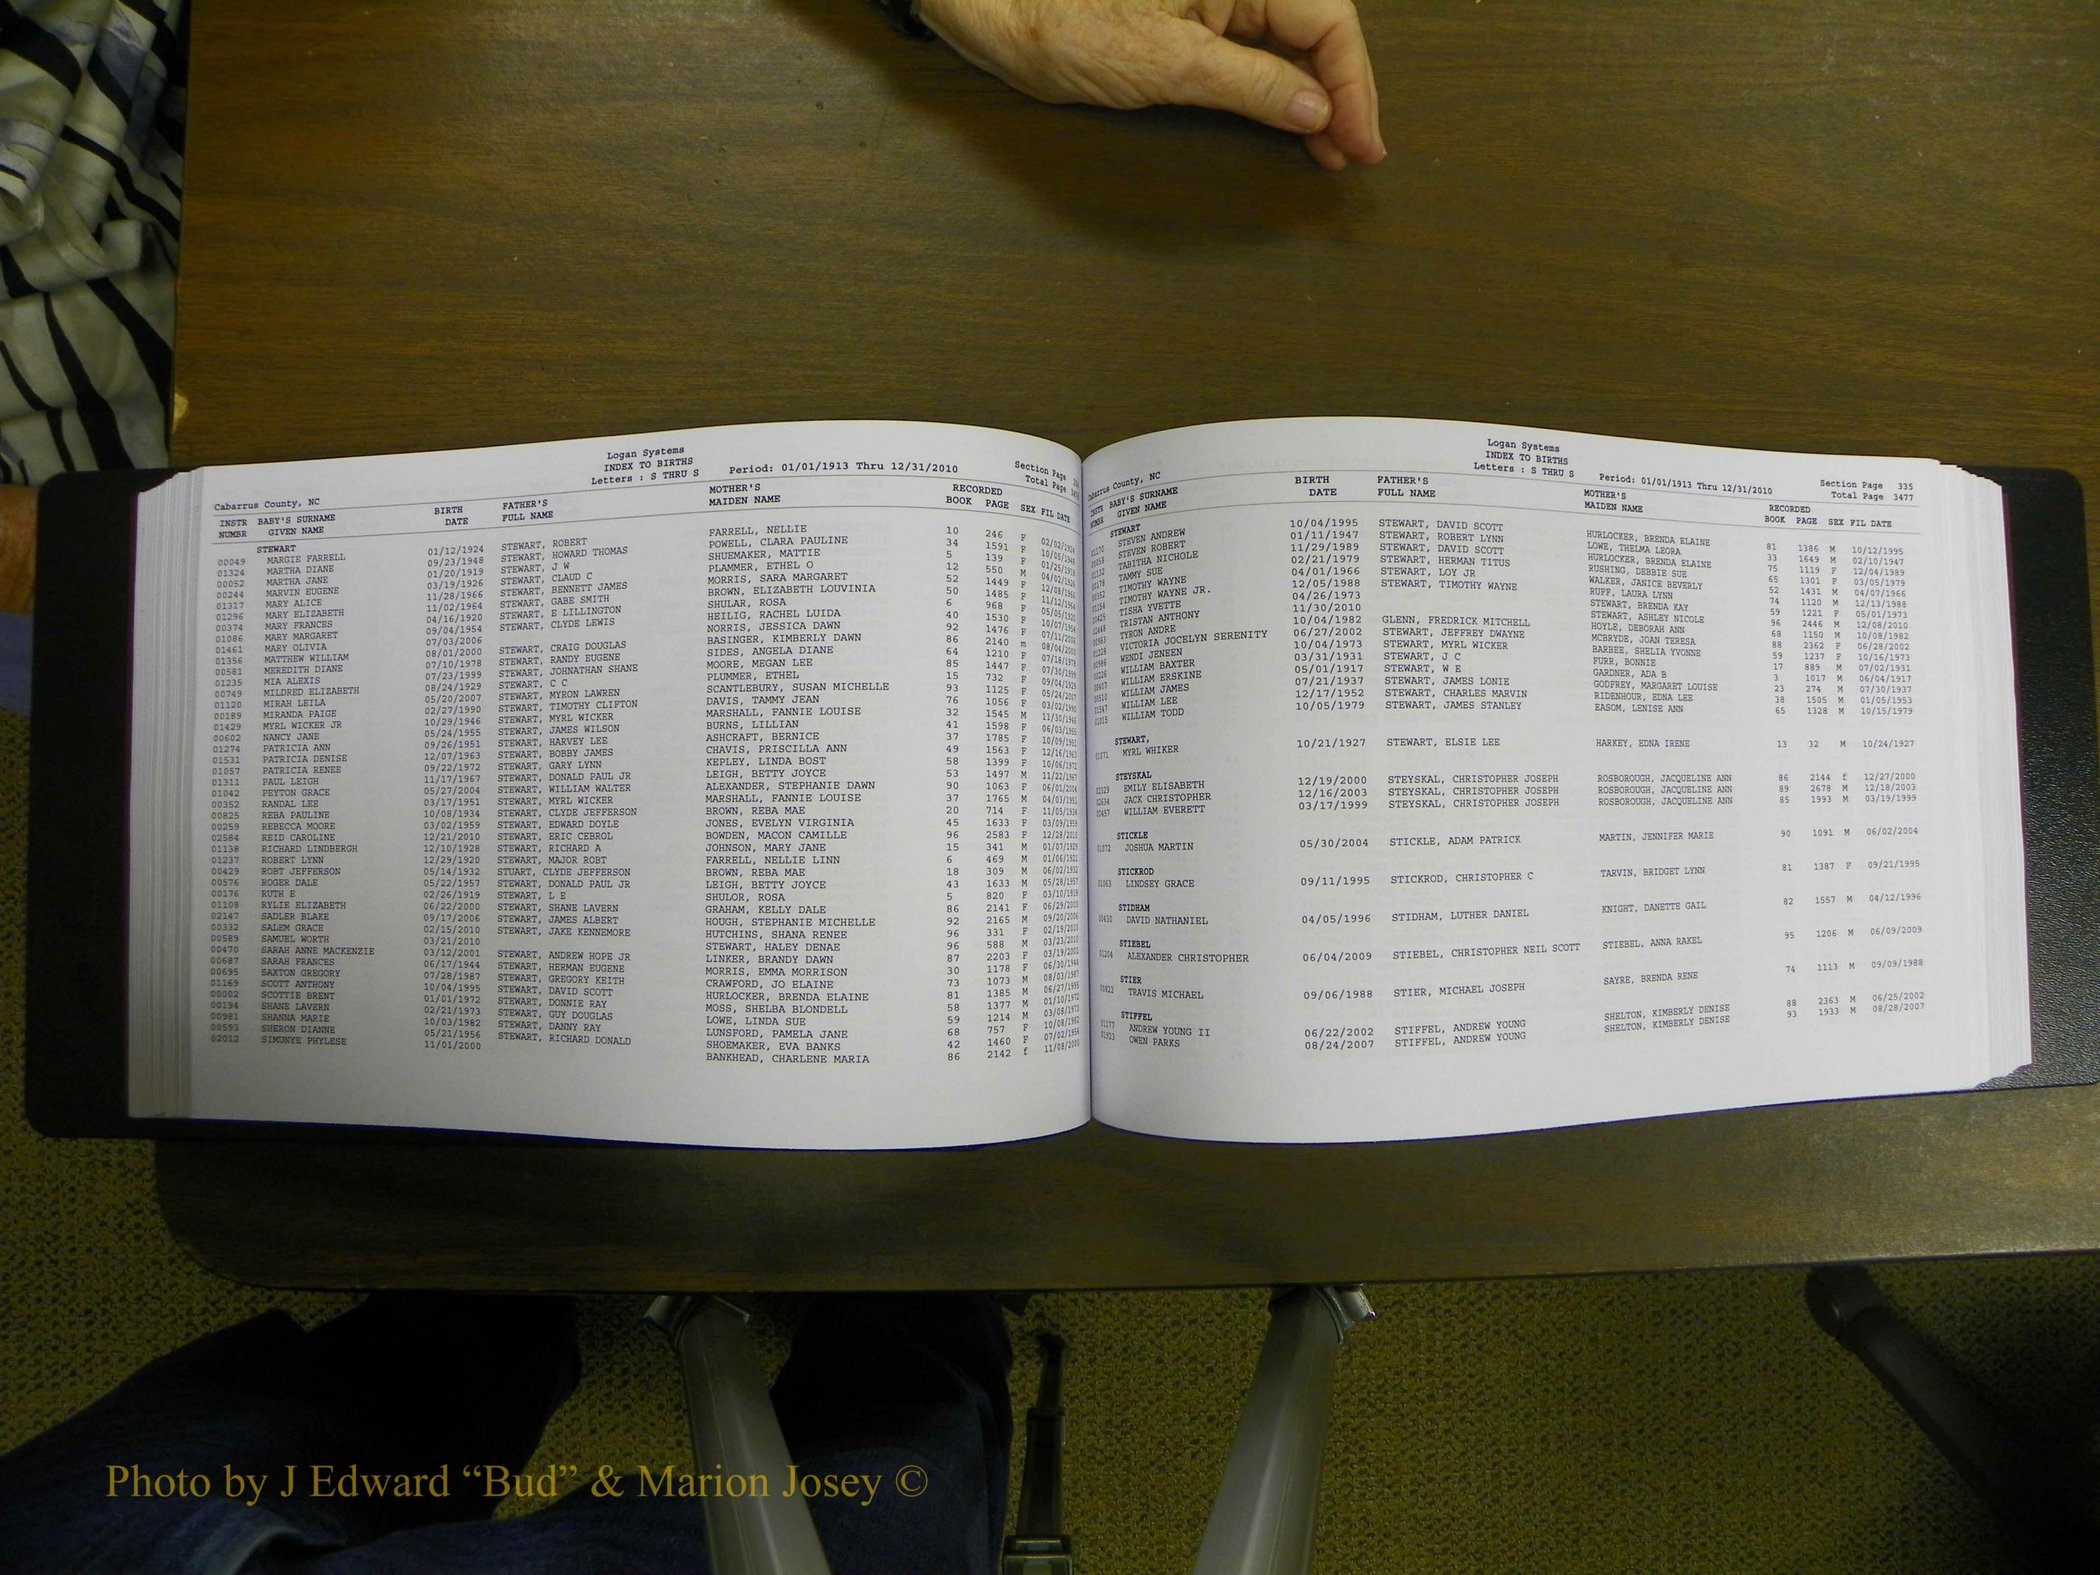 Logan Systems
INDEX TO BIRTHS
Letters : S THRU S
Period: 01/01/1913 Thru 12/31/2010
Section Page
Total Page
Cabarrus County, NC
INSTR BABY'S SURNAME BIRTH FATHER'S MOTHER'S RECORDED
NUMBR GIVEN NAME DATE FULL NAME MAIDEN NAME BOOK PAGE SEX FIL DATE
STEWART
00049 MARGIE FARRELL 01/12/1924 STEWART, ROBERT FARRELL, NELLIE 10 246 F 02/02/1924
01324 MARTHA DIANE 09/23/1948 STEWART, HOWARD THOMAS POWELL, CLARA PAULINE 34 1591 F 10/05/1948
00052 MARTHA JANE 01/20/1919 STEWART, J W SHUEMAKER, MATTIE 5 139 F 01/25/1919
00244 MARVIN EUGENE 03/19/1926 STEWART, CLAUD C PLAMMER, ETHEL O 12 550 M 04/02/1926
01317 MARY ALICE 11/28/1966 STEWART, BENNETT JAMES MORRIS, SARA MARGARET 52 1449 F 12/08/1966
01296 MARY ELIZABETH 11/02/1964 STEWART, GABE SMITH BROWN, ELIZABETH LOUVINIA 50 1485 F 11/12/1964
00374 MARY FRANCES 04/16/1920 STEWART, E LILLINGTON SHULAR, ROSA 6 968 F 05/05/1920
01086 MARY MARGARET 09/04/1954 STEWART, CLYDE LEWIS HEILIG, RACHEL LUIDA 40 1530 F 10/07/1954
01461 MARY OLIVIA 07/03/2006 NORRIS, JESSICA DAWN 92 1476 F 07/11/2006
01356 MATTHEW WILLIAM 08/01/2000 STEWART, CRAIG DOUGLAS BASINGER, KIMBERLY DAWN 86 2140 m 08/04/2000
00581 MEREDITH DIANE 07/10/1978 STEWART, RANDY EUGENE SIDES, ANGELA DIANE 64 1210 F 07/18/1978
01235 MIA ALEXIS 07/23/1999 STEWART, JOHNATHAN SHANE MOORE, MEGAN LEE 85 1447 F 07/30/1999
00749 MILDRED ELIZABETH 08/24/1929 STEWART, C C PLUMMER, ETHEL 15 732 F 09/04/1929
01120 MIRAH LEILA 05/20/2007 STEWART, MYRON LAWREN SCANTLEBURY, SUSAN MICHELLE 93 1125 F 05/24/2007
00189 MIRANDA PAIGE 02/27/1990 STEWART, TIMOTHY CLIFTON DAVIS, TAMMY JEAN 76 1056 F 03/02/1990
01429 MYRL WICKER JR 10/29/1946 STEWART, MYRL WICKER MARSHALL, FANNIE LOUISE 32 1545 M 11/30/1946
00602 NANCY JANE 05/24/1955 STEWART, JAMES WILSON BURNS, LILLIAN 41 1598 F 06/03/1955
01274 PATRICIA ANN 09/26/1951 STEWART, HARVEY LEE ASHCRAFT, BERNICE 37 1785 F 10/09/1951
01531 PATRICIA DENISE 12/07/1963 STEWART, BOBBY JAMES CHAVIS, PRISCILLA ANN 49 1563 F 12/16/1963
01057 PATRICIA RENEE 09/22/1972 STEWART, GARY LYNN KEPLEY, LINDA BOST 58 1399 F 10/06/1972
01311 PAUL LEIGH 11/17/1967 STEWART, DONALD PAUL JR LEIGH, BETTY JOYCE 53 1497 M 11/22/1967
01042 PEYTON GRACE 05/27/2004 STEWART, WILLIAM WALTER ALEXANDER, STEPHANIE DAWN 90 1063 F 06/01/2004
00352 RANDAL LEE 03/17/1951 STEWART, MYRL WICKER MARSHALL, FANNIE LOUISE 37 1765 M 04/03/1951
00825 REBA PAULINE 10/08/1934 STEWART, CLYDE JEFFERSON BROWN, REBA MAE 20 714 F 11/05/1934
00259 REBECCA MOORE 03/02/1959 STEWART, EDWARD DOYLE JONES, EVELYN VIRGINIA 45 1633 F 03/09/1959
02584 REID CAROLINE 12/21/2010 STEWART, ERIC CEBROL BOWDEN, MACON CAMILLE 96 2583 F 12/28/2010
01138 RICHARD LINDBERGH 12/10/1928 STEWART, RICHARD A JOHNSON, MARY JANE 15 341 M 01/07/1929
01237 ROBERT LYNN 12/29/1920 STEWART, MAJOR ROBT FARRELL, NELLIE LINN 6 469 M 01/06/1921
00429 ROBT JEFFERSON 05/14/1932 STUART, CLYDE JEFFERSON BROWN, REBA MAE 18 309 M 06/02/1932
00576 ROGER DALE 05/22/1957 STEWART, DONALD PAUL JR LEIGH, BETTY JOYCE 43 1633 M 05/28/1957
00176 RUTH E 02/26/1919 STEWART, L E SHULOR, ROSA 5 820 F 03/10/1919
01108 RYLIE ELIZABETH 06/22/2000 STEWART, SHANE LAVERN GRAHAM, KELLY DALE 86 2141 F 06/29/2000
02147 SADLER BLAKE 09/17/2006 STEWART, JAMES ALBERT HOUGH, STEPHANIE MICHELLE 92 2165 M 09/20/2006
00332 SALEM GRACE 02/15/2010 STEWART, JAKE KENNEMORE HUTCHINS, SHANA RENEE 96 331 F 02/19/2010
00589 SAMUEL WORTH 03/21/2010 STEWART, HALEY DENAE 96 588 M 03/23/2010
00470 SARAH ANNE MACKENZIE 03/12/2001 STEWART, ANDREW HOPE JR LINKER, BRANDY DAWN 87 2203 F 03/19/2001
00687 SARAH FRANCES 06/17/1944 STEWART, HERMAN EUGENE MORRIS, EMMA MORRISON 30 1178 F 06/30/1944
00695 SAXTON GREGORY 07/28/1987 STEWART, GREGORY KEITH CRAWFORD, JO ELAINE 73 1073 M 08/03/1987
01169 SCOTT ANTHONY 10/04/1995 STEWART, DAVID SCOTT HURLOCKER, BRENDA ELAINE 81 1385 M 06/27/1995
00002 SCOTTIE BRENT 01/01/1972 STEWART, DONNIE RAY MOSS, SHELBA BLONDELL 58 1377 M 01/10/1972
00194 SHANE LAVERN 02/21/1973 STEWART, GUY DOUGLAS LOWE, LINDA SUE 59 1214 M 03/08/1973
00981 SHANNA MARIE 10/03/1982 STEWART, DANNY RAY LUNSFORD, PAMELA JANE 68 757 F 10/08/1982
00593 SHERON DIANNE 05/21/1956 STEWART, RICHARD DONALD SHOEMAKER, EVA BANKS 42 1460 F 07/02/1956
02012 SIMUNYE PHYLESE 11/01/2000 BANKHEAD, CHARLENE MARIA 86 2142 f 11/08/2000
Logan Systems
INDEX TO BIRTHS
Letters : S THRU S
Period: 01/01/1913 Thru 12/31/2010
Section Page 335
Total Page 3477
Cabarrus County, NC
INSTR BABY'S SURNAME BIRTH FATHER'S MOTHER'S RECORDED
NUMBR GIVEN NAME DATE FULL NAME MAIDEN NAME BOOK PAGE SEX FIL DATE
STEWART
01170 STEVEN ANDREW 10/04/1995 STEWART, DAVID SCOTT HURLOCKER, BRENDA ELAINE 81 1386 M 10/12/1995
00058 STEVEN ROBERT 01/11/1947 STEWART, ROBERT LYNN LOWE, THELMA LEORA 33 1649 M 02/10/1947
TABITHA NICHOLE 11/29/1989 STEWART, DAVID SCOTT HURLOCKER, BRENDA ELAINE 75 1119 F 12/04/1989
TAMMY SUE 02/21/1979 STEWART, HERMAN TITUS RUSHING, DEBBIE SUE 65 1301 F 03/05/1979
00352 TIMOTHY WAYNE 04/01/1966 STEWART, LOY JR WALKER, JANICE BEVERLY 52 1431 M 04/07/1966
TIMOTHY WAYNE JR. 12/05/1988 STEWART, TIMOTHY WAYNE RUFF, LAURA LYNN 74 1120 M 12/13/1988
00425 TISHA YVETTE 04/26/1973 STEWART, BRENDA KAY 59 1221 F 05/01/1973
02448 TRISTAN ANTHONY 11/30/2010 STEWART, ASHLEY NICOLE 96 2446 M 12/08/2010
00983 TYRON ANDRE 10/04/1982 GLENN, FREDRICK MITCHELL HOYLE, DEBORAH ANN 68 1150 M 10/08/1982
01228 VICTORIA JOCELYN SERENITY 06/27/2002 STEWART, JEFFREY DWAYNE MCBRYDE, JOAN TERESA 88 2362 F 06/28/2002
00986 WENDI JENEEN 10/04/1973 STEWART, MYRL WICKER BARBEE, SHELIA YVONNE 59 1237 F 10/16/1973
00226 WILLIAM BAXTER 03/31/1931 STEWART, J C FURR, BONNIE 17 889 M 07/02/1931
00407 WILLIAM ERSKINE 05/01/1917 STEWART, W E GARDNER, ADA B 3 1017 M 06/04/1917
00510 WILLIAM JAMES 07/21/1937 STEWART, JAMES LONIE GODFREY, MARGARET LOUISE 23 274 M 07/30/1937
01547 WILLIAM LEE 12/17/1952 STEWART, CHARLES MARVIN RIDENHOUR, EDNA LEE 38 1505 M 01/05/1953
01015 WILLIAM TODD 10/05/1979 STEWART, JAMES STANLEY EASOM, LENISE ANN 65 1328 M 10/15/1979
STEWART,
01071 MYRL WHIKER 10/21/1927 STEWART, ELSIE LEE HARKEY, EDNA IRENE 13 32 M 10/24/1927
STEYSKAL
02329 EMILY ELISABETH 12/19/2000 STEYSKAL, CHRISTOPHER JOSEPH ROSBOROUGH, JACQUELINE ANN 86 2144 f 12/27/2000
02634 JACK CHRISTOPHER 12/16/2003 STEYSKAL, CHRISTOPHER JOSEPH ROSBOROUGH, JACQUELINE ANN 89 2678 M 12/18/2003
00457 WILLIAM EVERETT 03/17/1999 STEYSKAL, CHRISTOPHER JOSEPH ROSBOROUGH, JACQUELINE ANN 85 1993 M 03/19/1999
STICKLE
01072 JOSHUA MARTIN 05/30/2004 STICKLE, ADAM PATRICK MARTIN, JENNIFER MARIE 90 1091 M 06/02/2004
STICKROD
01063 LINDSEY GRACE 09/11/1995 STICKROD, CHRISTOPHER C TARVIN, BRIDGET LYNN 81 1387 F 09/21/1995
STIDHAM
00430 DAVID NATHANIEL 04/05/1996 STIDHAM, LUTHER DANIEL KNIGHT, DANETTE GAIL 82 1557 M 04/12/1996
STIEBEL
01204 ALEXANDER CHRISTOPHER 06/04/2009 STIEBEL, CHRISTOPHER NEIL SCOTT STIEBEL, ANNA RAKEL 95 1206 M 06/09/2009
STIER
00822 TRAVIS MICHAEL 09/06/1988 STIER, MICHAEL JOSEPH SAYRE, BRENDA RENE 74 1113 M 09/09/1988
STIFFEL
01177 ANDREW YOUNG II 06/22/2002 STIFFEL, ANDREW YOUNG SHELTON, KIMBERLY DENISE 88 2363 M 06/25/2002
01923 OWEN PARKS 08/24/2007 STIFFEL, ANDREW YOUNG SHELTON, KIMBERLY DENISE 93 1933 M 08/28/2007
Photo by J Edward “Bud” & Marion Josey ©